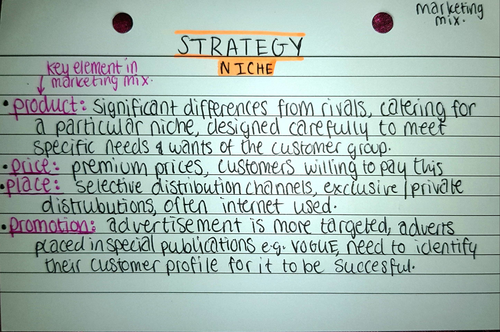 marketing
mix.
STRATEGY
NICHE
key element in
marketing mix.
• product: significant differences from rivals, catering for
a particular niche, designed carefully to meet
specific needs & wants of the customer group.
• price: premium prices, customers willing to pay this
• place: selective distribution channels, exclusive/private
distrubutions, often internet used.
• promotion: advertisement is more targeted, adverts
placed in special publications e.g. VOGUE, need to identify
their customer profile for it to be succesful.